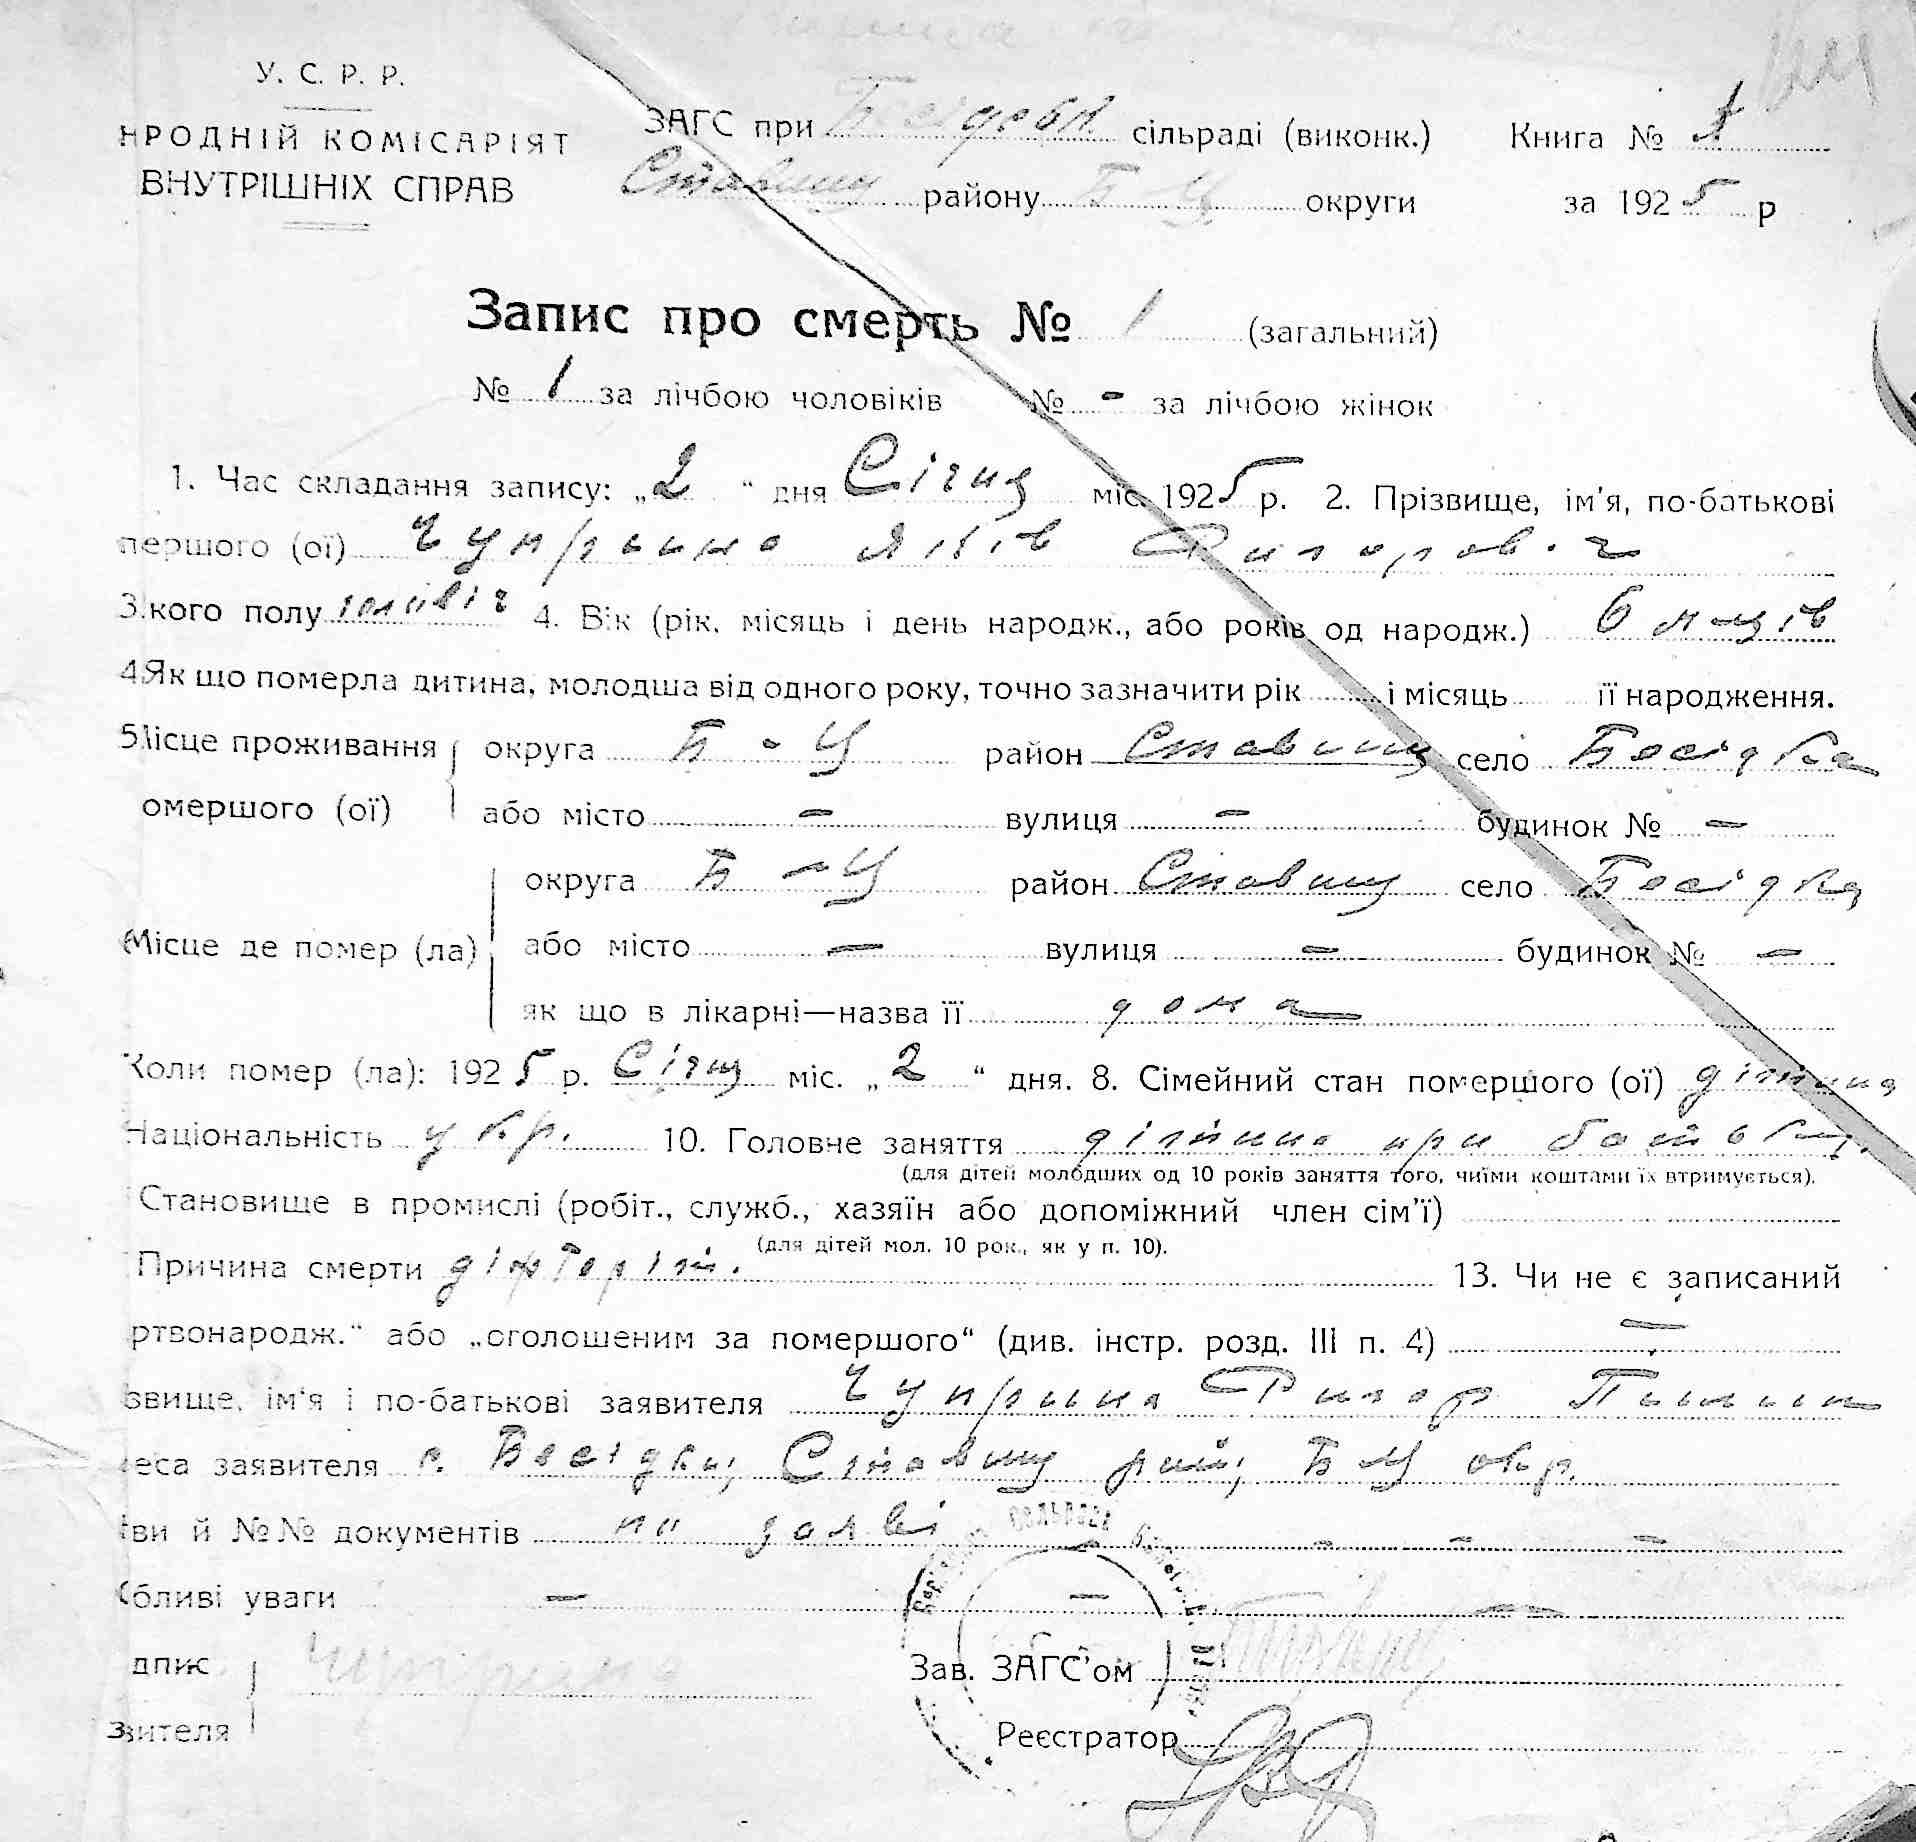 У. С. Р. Р.
НРОДНІЙ КОМІСАРІЯТ
ВНУТРІШНІХ СПРАВ
ЗАГС при Бесідськ. сільраді (виконк.)
Ставищ району Б Ц округи
Книга №
за 1925 р
Запис про смерть № 1 (загальний)
№ 1 за лічбою чоловіків № - за лічбою жінок
1. Час складання запису: „2“ дня Січня міс. 1925 р. 2. Прізвище, ім'я, по-батькові
першого (ої) Чуприна Яків Фигоров.ч
3.кого полу чоловіч 4. Вік (рік, місяць і день народж., або років од народж.) 6 м-ців
4Як що померла дитина, молодша від одного року, точно зазначити рік і місяць її народження.
5Місце проживання округа Б - Ц район Ставищ село Бесідка
омершого (ої) або місто - вулиця - будинок № -
округа Б - Ц район Ставищ село Бесідка
6Місце де помер (ла) або місто - вулиця - будинок № -
як що в лікарні—назва її дома
Коли помер (ла): 1925 р. Січня міс. „2“ дня. 8. Сімейний стан помершого (ої) дитина
Національність укр. 10. Головне заняття дитина при батьку.
(для дітей молодших од 10 років заняття того, чиїми коштами їх втримується).
Становище в промислі (робіт., служб., хазяїн або допоміжний член сім'ї)
(для дітей мол. 10 рок., як у п. 10).
Причина смерти діфтерія. 13. Чи не є записаний
ртвонародж.“ або „оголошеним за помершого“ (див. інстр. розд. III п. 4) -
звище, ім'я і по-батькові заявителя Чуприна Фигор Пилип
еса заявителя с. Бесідки, Ставищ рай, Б Ц окр.
ви й №№ документів по заяві - - -
бливі уваги - - -
дпис Чуприна Зав. ЗАГС'ом
звителя Реєстратор